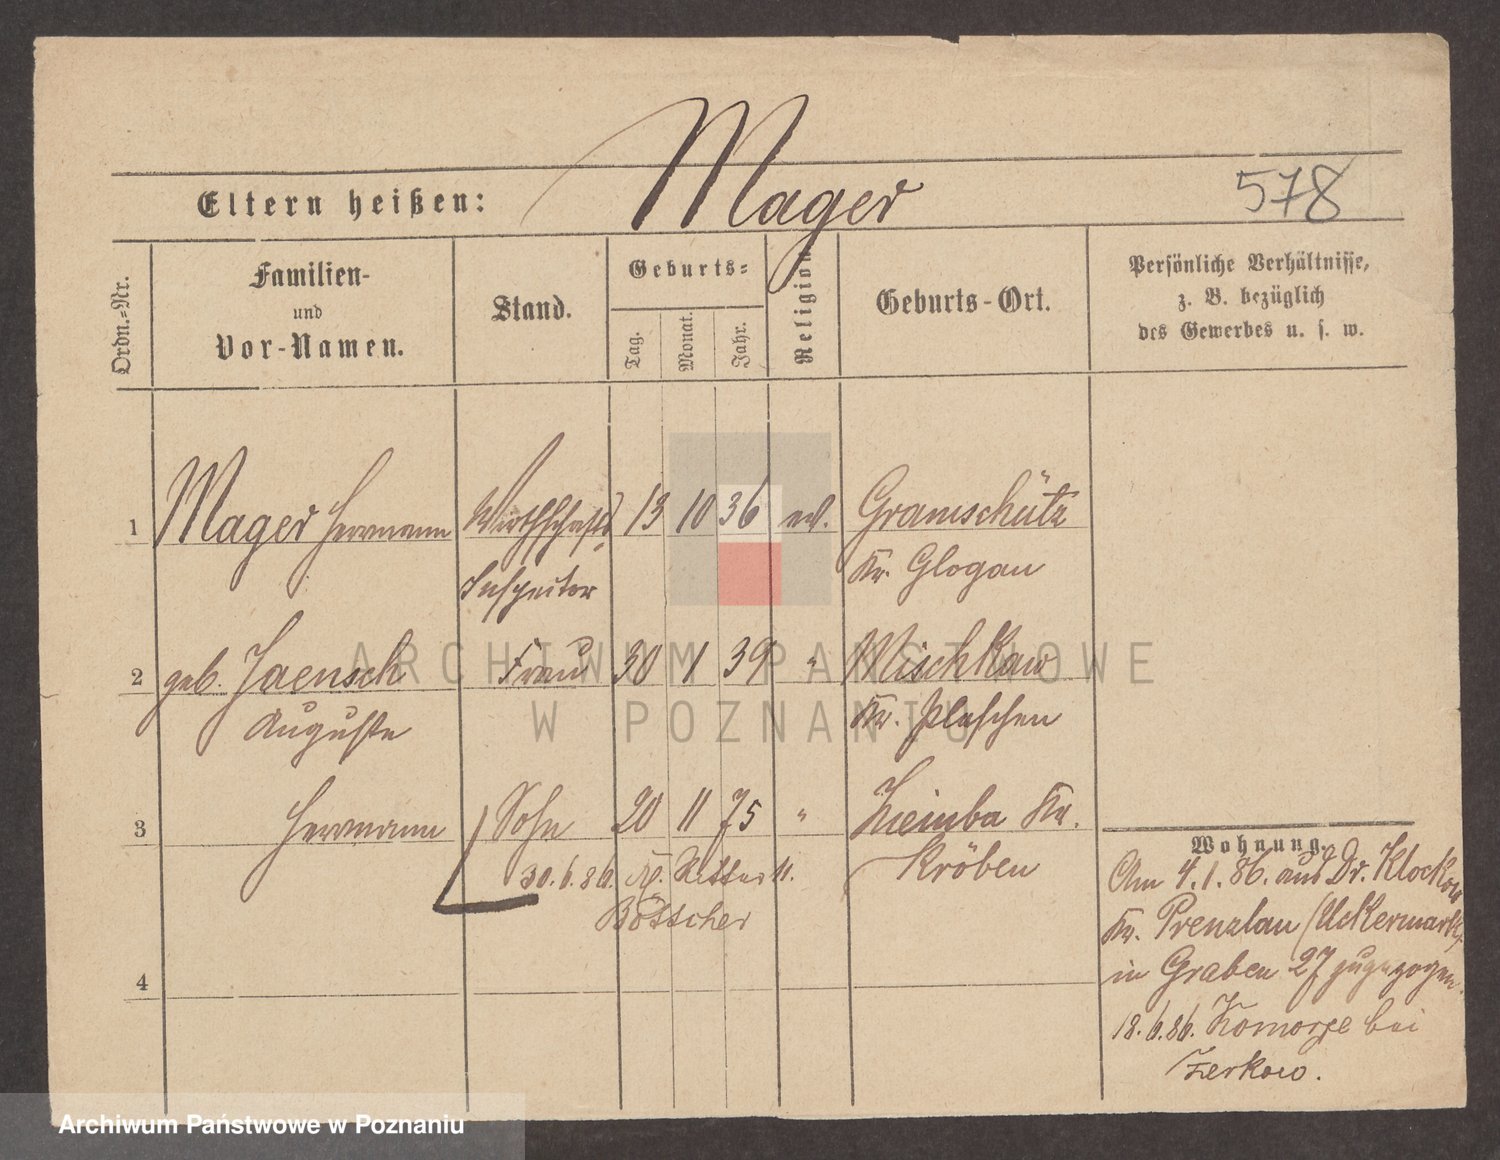 Mager
578
Eltern heißen:
Ordn.-Nr.
Familien-
und
Vor-Namen.
Stand.
Geburts-
Tag.
Monat.
Jahr.
Religion
Geburts-Ort.
Persönliche Verhältnisse,
z. B. bezüglich
des Gewerbes u. s. w.
1 Mager Herrmann Wirthschafts 13 10 36 ev. Gramschütz
Inspector Kr. Glogau
2 geb. Jaensch Frau 30 1 39 " Mischkaw
Auguste Kr. Pleschen
3 Herrmann Sohn 20 11 75 " Zieimba Kr.
30.6.86. Ritter 11. Kröben
Böttcher
4
Wohnung.
Am 4.1.86. aus Dr. Klockow
Kr. Prenzlau (Uckermark)
in Graben 27 zugezogen.
18.6.86. Komorze bei
Zerkow.
ARCHIWUM PAŃSTWOWE
W POZNANIU
Archiwum Państwowe w Poznaniu